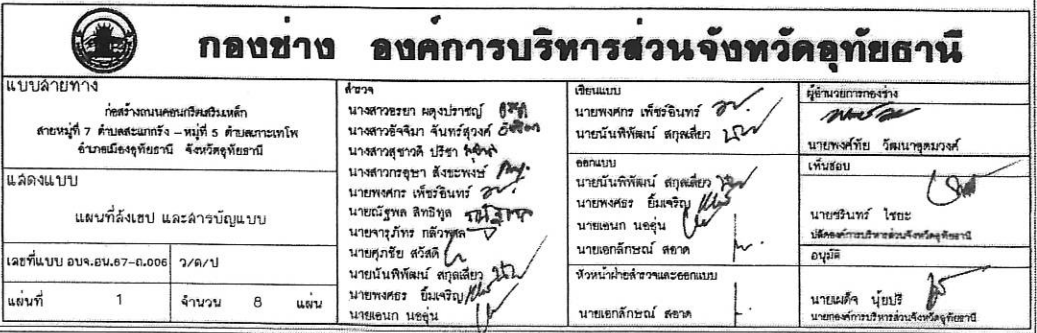 กองช่าง องค์การบริหารส่วนจังหวัดอุทัยธานี
แบบสายทาง
ก่อสร้างถนนคอนกรีตเสริมเหล็ก
สายหมู่ที่ 7 ตำบลสะแกกรัง – หมู่ที่ 5 ตำบลเกาะเทโพ
อำเภอเมืองอุทัยธานี จังหวัดอุทัยธานี
แสดงแบบ
แผนที่สังเขป และสารบัญแบบ
เลขที่แบบ อบจ.อน.67-ถ.006 ว/ด/ป
แผ่นที่ 1 จำนวน 8 แผ่น
สำรวจ
นางสาวอรยา ผดุงปราชญ์
นางสาวอัจจิมา จันทร์สุวงศ์
นางสาวสุชาวดี ปรีชา
นางสาวกรอุษา สังขะพงษ์
นายพงศกร เพ็ชร์อินทร์
นายณัฐพล สิทธิทูล
นายจารุภัทร กลัวพูศล
นายศุภชัย สวัสดิ์
นายนันพิพัฒน์ สกุลเสี่ยว
นายพงศธร ยิ้มเจริญ
นายเอนก นออุ่น
เขียนแบบ
นายพงศกร เพ็ชร์อินทร์
นายนันพิพัฒน์ สกุลเสี่ยว
ออกแบบ
นายนันพิพัฒน์ สกุลเสี่ยว
นายพงศธร ยิ้มเจริญ
นายเอนก นออุ่น
นายเอกลักษณ์ สอาด
หัวหน้าฝ่ายสำรวจและออกแบบ
นายเอกลักษณ์ สอาด
ผู้อำนวยการกองช่าง
นายพงศ์ทัย วัฒนาอุดมวงศ์
เห็นชอบ
นายชรินทร์ ไชยะ
ปลัดองค์การบริหารส่วนจังหวัดอุทัยธานี
อนุมัติ
นายเผด็จ นุ้ยปรี
นายกองค์การบริหารส่วนจังหวัดอุทัยธานี